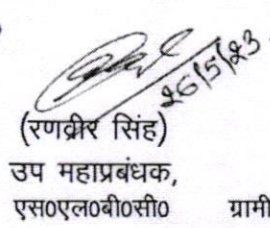 26/5/23
(रणवीर सिंह)
उप महाप्रबंधक,
एस0एल0बी0सी0 ग्रामी